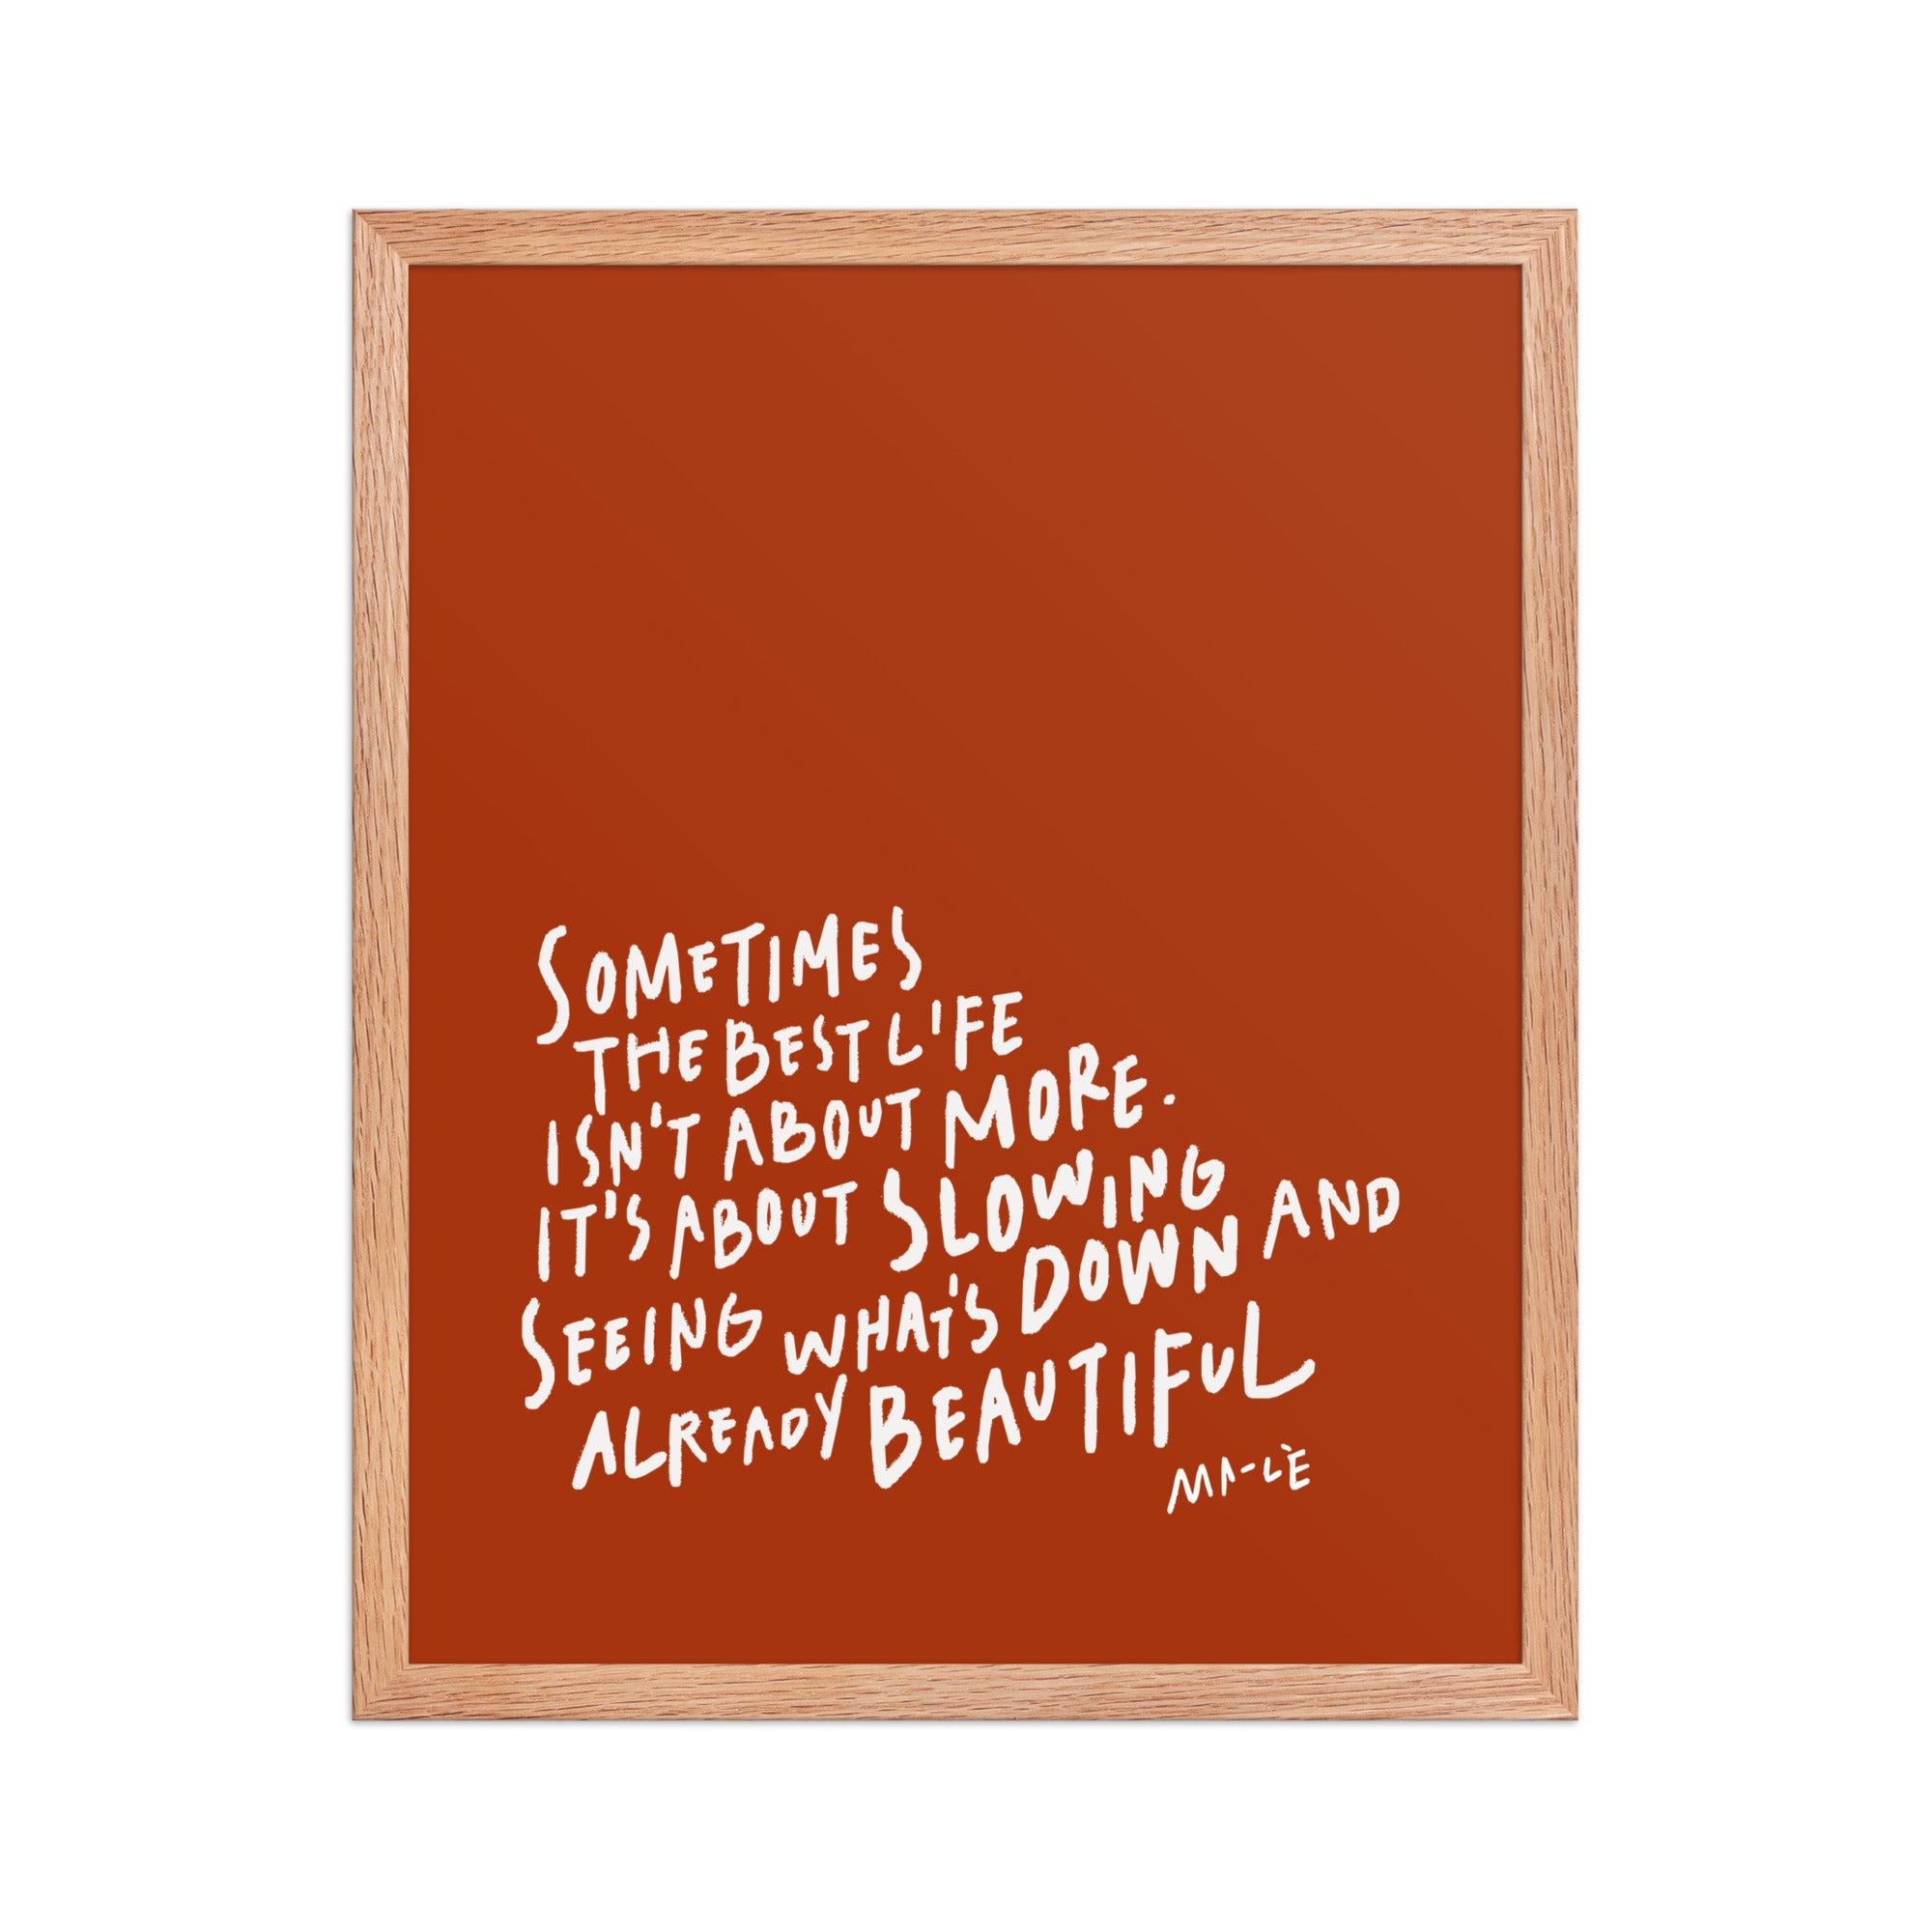 SOMETIMES
THE BEST LIFE
ISN'T ABOUT MORE.
IT'S ABOUT SLOWING
DOWN AND
SEEING WHAT'S
ALREADY BEAUTIFUL
MA-LÈ